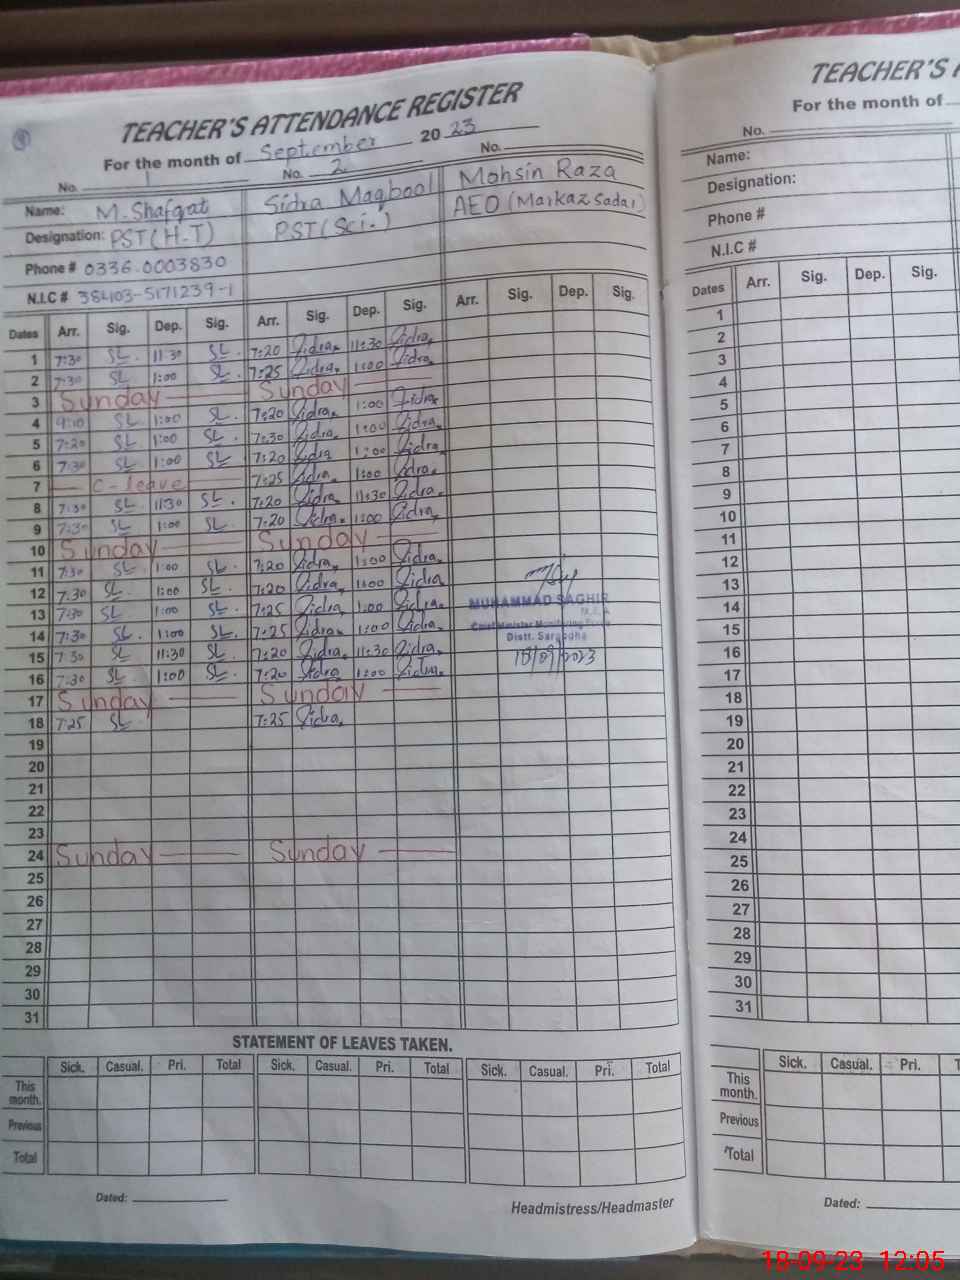 TEACHER'S ATTENDANCE REGISTER
For the month of September 2023
No. 1 No. 2 No.
Name: M. Shafqat Sidra Maqbool Mohsin Raza
Designation: PST(H.T) PST(Sci.) AEO (Markaz Sadar)
Phone # 0336-0003830
N.I.C # 38403-5171239-1
Dates Arr. Sig. Dep. Sig. Arr. Sig. Dep. Sig. Arr. Sig. Dep. Sig.
1 7:30 SL 11:30 SL 7:20 Sidra 11:30 Sidra
2 7:30 SL 1:00 SL 7:25 Sidra 1:00 Sidra
3 Sunday Sunday
4 9:10 SL 1:00 SL 7:20 Sidra 1:00 Sidra
5 7:20 SL 1:00 SL 7:30 Sidra 1:00 Sidra
6 7:30 SL 1:00 SL 7:20 Sidra 1:00 Sidra
7 C-leave 7:25 Sidra 1:00 Sidra
8 7:30 SL 11:30 SL 7:20 Sidra 11:30 Sidra
9 7:30 SL 1:00 SL 7:20 Sidra 1:00 Sidra
10 Sunday Sunday
11 7:30 SL 1:00 SL 7:20 Sidra 1:00 Sidra
12 7:30 SL 1:00 SL 7:20 Sidra 1:00 Sidra
13 7:30 SL 1:00 SL 7:25 Sidra 1:00 Sidra
MUHAMMAD SAGHIR
M.E.A
14 7:30 SL 1:00 SL 7:25 Sidra 1:00 Sidra
Chief Minister Monitoring Force
Distt. Sargodha
15 7:30 SL 11:30 SL 7:20 Sidra 11:30 Sidra
18/09/2023
16 7:30 SL 1:00 SL 7:20 Sidra 1:00 Sidra
17 Sunday Sunday
18 7:25 SL 7:25 Sidra
19
20
21
22
23
24 Sunday Sunday
25
26
27
28
29
30
31
STATEMENT OF LEAVES TAKEN.
Sick. Casual. Pri. Total Sick. Casual. Pri. Total Sick. Casual. Pri. Total
This month.
Previous
Total
Dated:
Headmistress/Headmaster
TEACHER'S A
For the month of
No.
Name:
Designation:
Phone #
N.I.C #
Dates Arr. Sig. Dep. Sig.
1
2
3
4
5
6
7
8
9
10
11
12
13
14
15
16
17
18
19
20
21
22
23
24
25
26
27
28
29
30
31
Sick. Casual. Pri. T
This month.
Previous
Total
Dated:
18-09-23 12:05